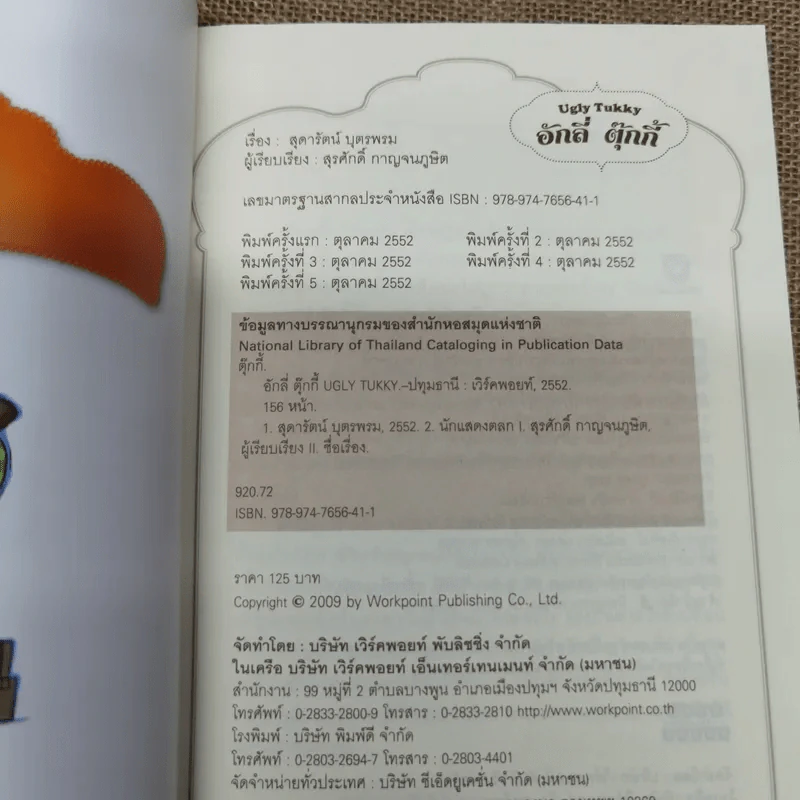 Ugly Tukky
อักลี่ ตุ๊กกี้
เรื่อง : สุดารัตน์ บุตรพรม
ผู้เรียบเรียง : สุรศักดิ์ กาญจนภูษิต
เลขมาตรฐานสากลประจำหนังสือ ISBN : 978-974-7656-41-1
พิมพ์ครั้งแรก : ตุลาคม 2552 พิมพ์ครั้งที่ 2 : ตุลาคม 2552
พิมพ์ครั้งที่ 3 : ตุลาคม 2552 พิมพ์ครั้งที่ 4 : ตุลาคม 2552
พิมพ์ครั้งที่ 5 : ตุลาคม 2552
ข้อมูลทางบรรณานุกรมของสำนักหอสมุดแห่งชาติ
National Library of Thailand Cataloging in Publication Data
ตุ๊กกี้.
อักลี่ ตุ๊กกี้ UGLY TUKKY.–ปทุมธานี : เวิร์คพอยท์, 2552.
156 หน้า.
1. สุดารัตน์ บุตรพรม, 2552. 2. นักแสดงตลก I. สุรศักดิ์ กาญจนภูษิต,
ผู้เรียบเรียง II. ชื่อเรื่อง.
920.72
ISBN. 978-974-7656-41-1
ราคา 125 บาท
Copyright © 2009 by Workpoint Publishing Co., Ltd.
จัดทำโดย : บริษัท เวิร์คพอยท์ พับลิชชิ่ง จำกัด
ในเครือ บริษัท เวิร์คพอยท์ เอ็นเทอร์เทนเมนท์ จำกัด (มหาชน)
สำนักงาน : 99 หมู่ที่ 2 ตำบลบางพูน อำเภอเมืองปทุมฯ จังหวัดปทุมธานี 12000
โทรศัพท์ : 0-2833-2800-9 โทรสาร : 0-2833-2810 http://www.workpoint.co.th
โรงพิมพ์ : บริษัท พิมพ์ดี จำกัด
โทรศัพท์ : 0-2803-2694-7 โทรสาร : 0-2803-4401
จัดจำหน่ายทั่วประเทศ : บริษัท ซีเอ็ดยูเคชั่น จำกัด (มหาชน)